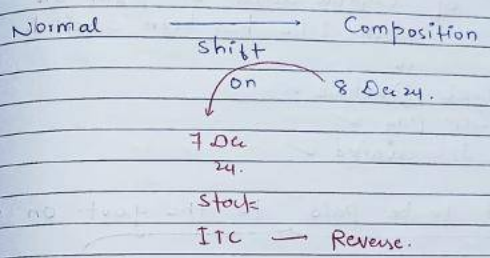 Normal → Composition
Shift
on 8 Dec 24.
7 Dec
24.
Stock
ITC — Reverse.